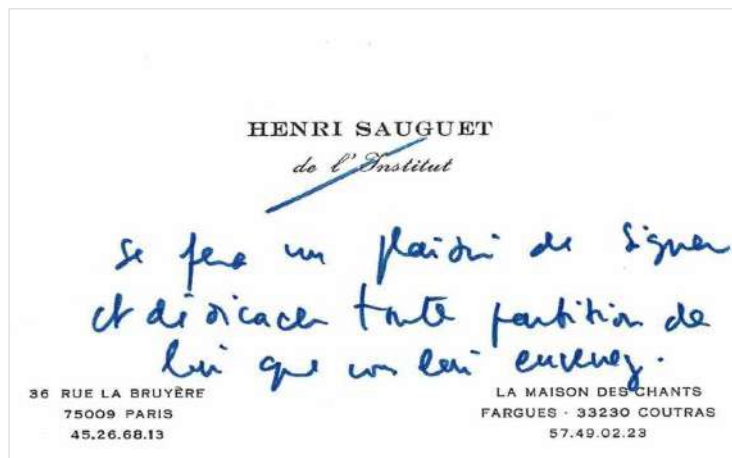 HENRI SAUGUET
de l'Institut
se fera un plaisir de signer
et dédicacer toute partition de
lui que vous lui enverrez.
36 RUE LA BRUYÈRE
75009 PARIS
45.26.68.13
LA MAISON DES CHANTS
FARGUES - 33230 COUTRAS
57.49.02.23